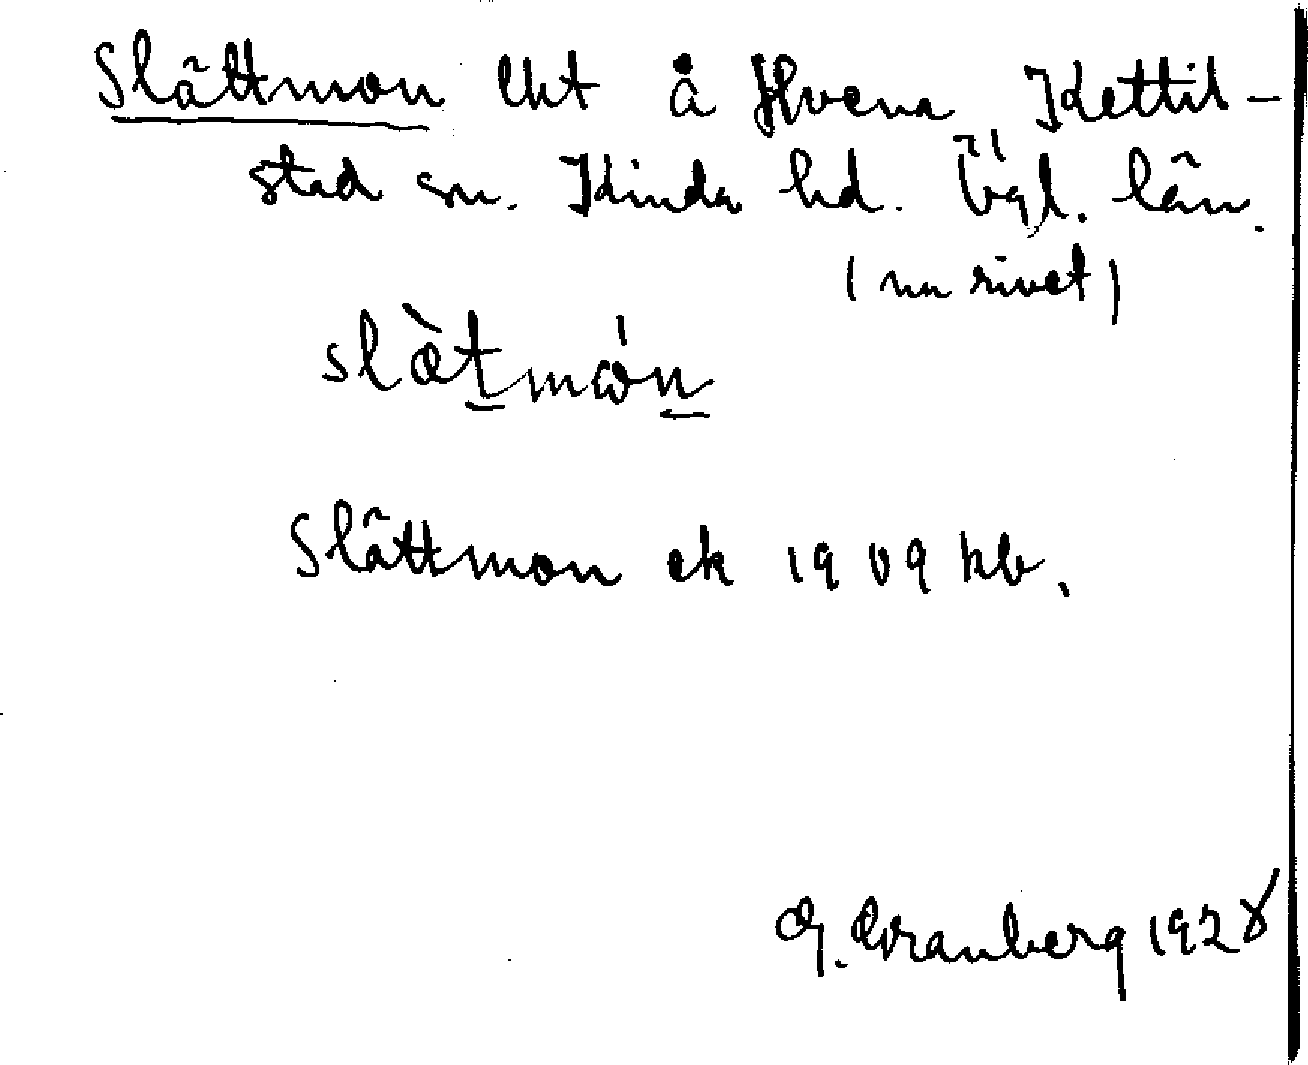 Slättmon lht å Hvena Kettil-
stad sn. Kinda hd. Ögl. län.
(nu rivet)
slæ̀tmòn
Slättmon ek 1909 kb.
G. Granberg 1928